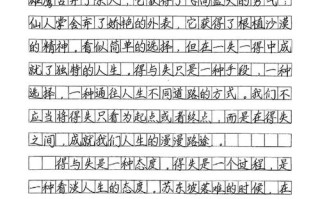 舍弃了家人，它获得了飞向蓝天的方式；
仙人掌舍弃了娇艳的外表，它获得了根植沙漠
的精神，看似简单的选择，但在一失一得中成
就了独特的人生，得与失只是一种手段，一种
选择，一种通往人生不同道路的方式。我们不
应当将得失只看为起点或着终点，而是在得失
之间，成就我们人生的漫漫路途。
得与失是一种态度。得失是一个过程，是
一种看淡人生的态度。苏东坡苦难的时候，在